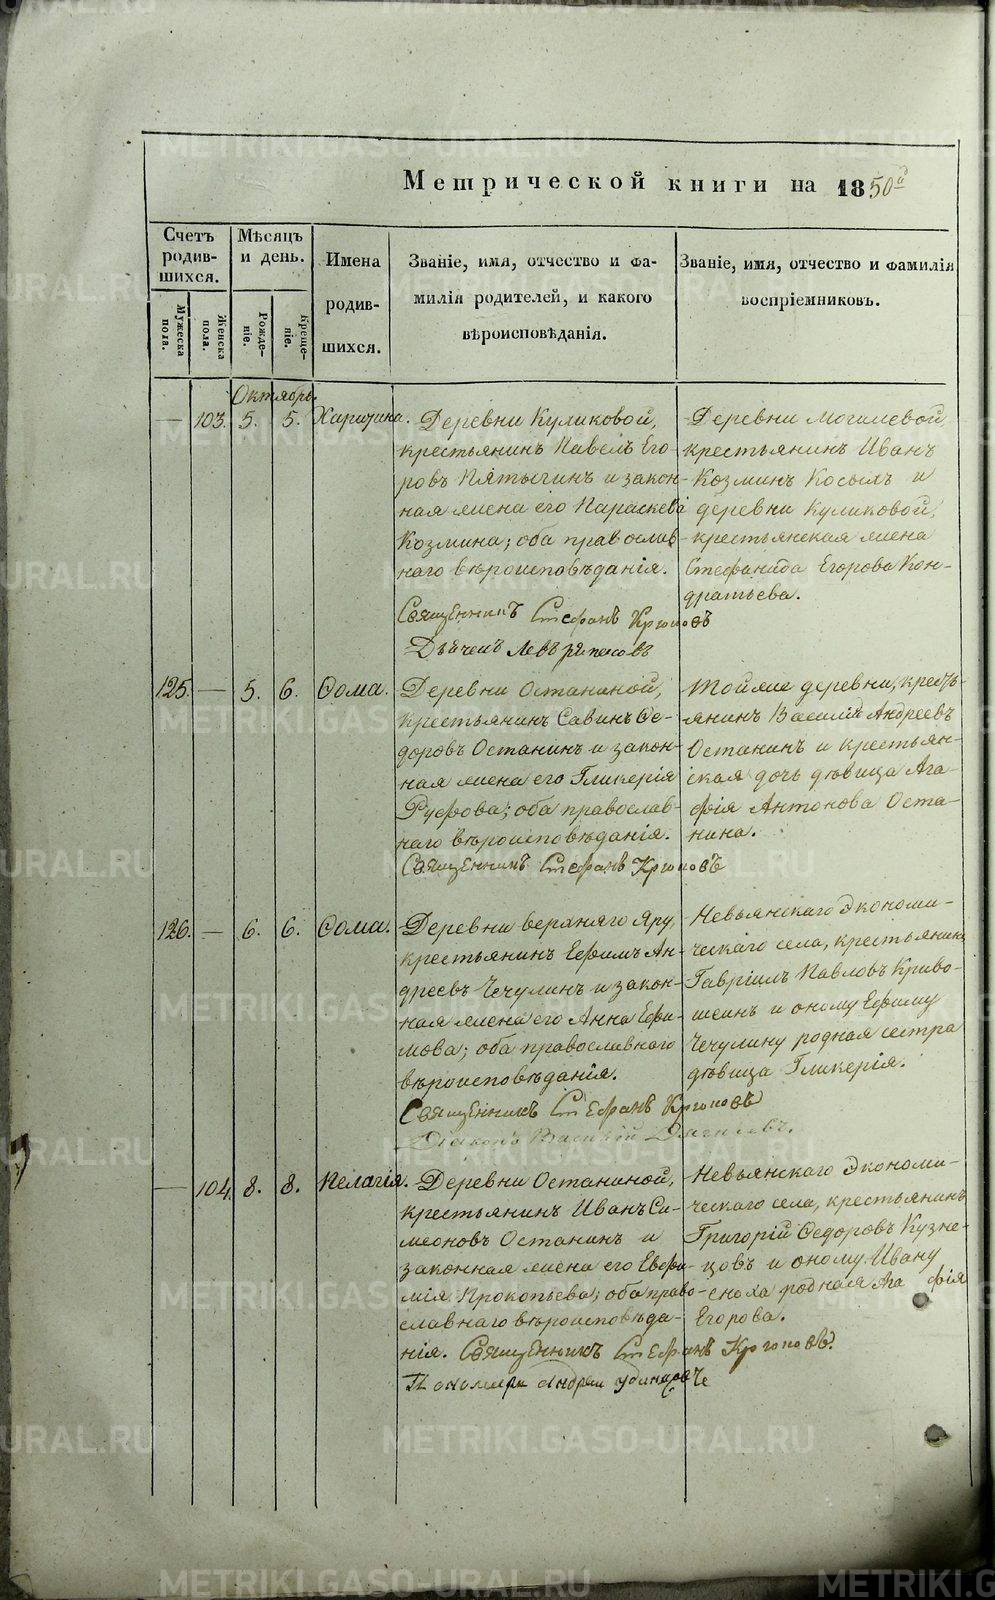 Метрической книги на 1850й
Счетъ родив-шихся.
Мужеска пола.
Женска пола.
Мѣсяцъ и день.
Рожде-ніе.
Креще-ніе.
Имена родив-шихся.
Званіе, имя, отчество и фа-
милія родителей, и какого
вѣроисповѣданія.
Званіе, имя, отчество и фамилія
воспріемниковъ.
Октябрь.
— 103. 5. 5. Харитина.
Деревни Куликовой,
крестьянинъ Павелъ Его-
ровъ Пятыгинъ и закон-
ная жена его Параскева
Козмина; оба православ-
наго вѣроисповѣданія.
Священникъ Стефанъ Крюковъ
Деревни Могилевой,
крестьянинъ Иванъ
Козминъ Косыхъ и
деревни Куликовой,
крестьянская жена
Стефанида Егорова Кон-
дратьева.
125. — 5. 6. Ѳома.
Деревни Останиной,
крестьянинъ Савинъ Ѳе-
доровъ Останинъ и закон-
ная жена его Гликерія
Руфова; оба православ-
наго вѣроисповѣданія.
Священникъ Стефанъ Крюковъ
Тойже деревни, кресть-
янинъ Василій Андреевъ
Останинъ и крестьян-
ская дочь дѣвица Ага-
фія Антонова Оста-
нина.
126. — 6. 6. Ѳома.
Деревни верхняго Яру,
крестьянинъ Ефимъ Ан-
дреевъ Чечулинъ и закон-
ная жена его Анна Ефи-
мова; оба православнаго
вѣроисповѣданія.
Священникъ Стефанъ Крюковъ
Діаконъ Василій
Невьянскаго Экономи-
ческаго села, крестьянинъ
Гавріилъ Павловъ Криво-
шеинъ и оному Ефиму
Чечулину родная сестра
дѣвица Гликерія.
— 104. 8. 8. Пелагія.
Деревни Останиной,
крестьянинъ Иванъ Си-
меоновъ Останинъ и
законная жена его Евфи-
мія Прокопьева; оба право-
славнаго вѣроисповѣда-
нія. Священникъ Стефанъ Крюковъ.
Пономарь Андрей
Невьянскаго Экономи-
ческаго села, крестьянинъ
Григорій Ѳедоровъ Кузне-
цовъ и оному Ивану
сноха родная Агафія
Егорова.
METRIKI.GASO-URAL.RU